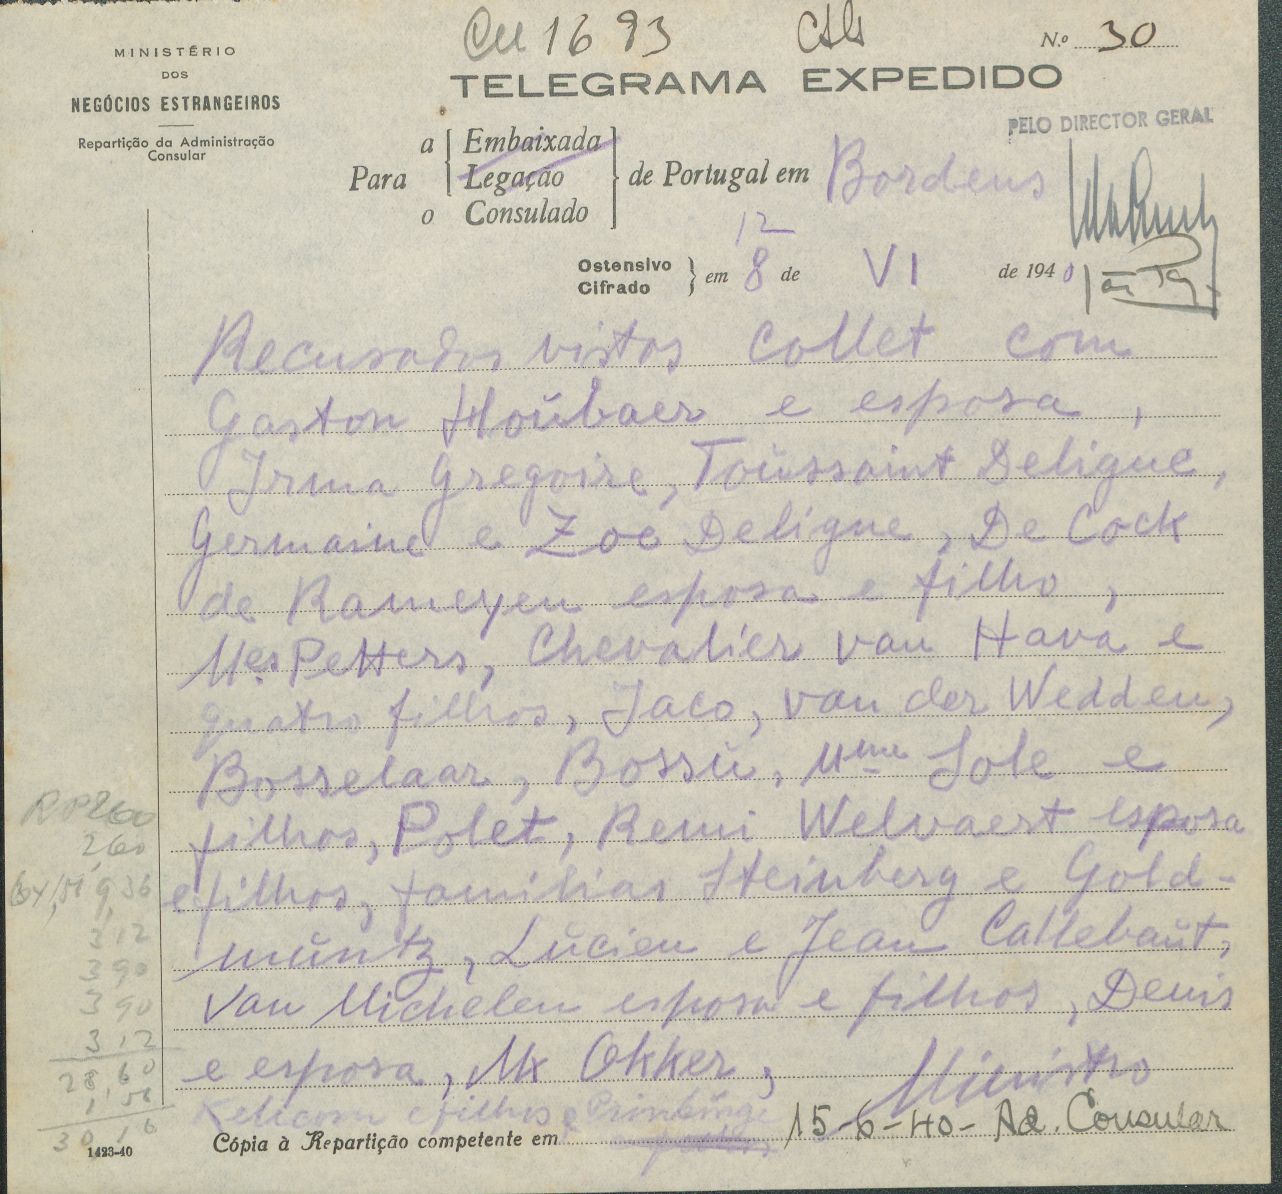 Cu 1693
N.º 30
MINISTÉRIO
DOS
NEGÓCIOS ESTRANGEIROS
Repartição da Administração
Consular
TELEGRAMA EXPEDIDO
PELO DIRECTOR GERAL
Para a Embaixada Legação o Consulado de Portugal em Bordeus
12
Ostensivo Cifrado em 8 de VI de 1940
Recusados vistos Collet com
Gaston Houbaer e esposa,
Irma Gregoire, Toussaint Deligue,
Germaine e Zoé Deligne, De Cock
de Rameyen esposa e filho,
Mes Petters, Chevalier van Hava e
quatro filhos, Jaco, van der Wedden,
Bosselaar, Bossu, Mme Sole e
filhos, Polet, Remi Welvaert esposa
e filhos, familias Steinberg e Gold-
muntz, Lucien e Jean Callebaut,
Van Michelen esposa e filhos, Denis
e esposa, Mx Okker,
Ministro
e filhos e
RP260
2,60
9,36
3 12
3 90
3 90
3 12
28,60
1,56
30,16
Cópia à Repartição competente em 15-6-40- Ad. Consular
1423-40